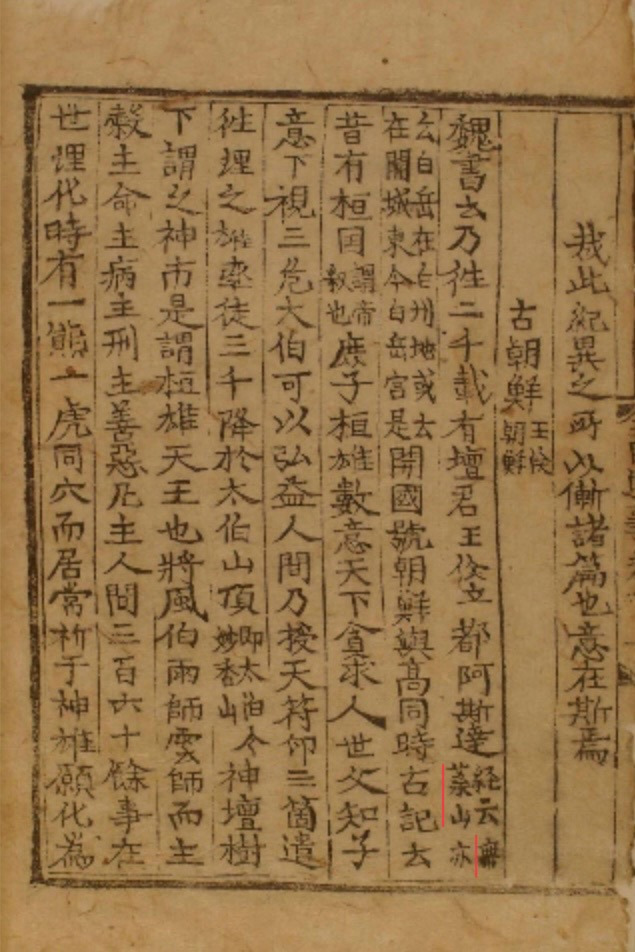 哉此紀異之所以慚諸篇也意在斯焉
古朝鮮王儉朝鮮
魏書云乃徃二千載有壇君王儉立都阿斯達経云無葉山亦
云白岳在白州地或云在開城東今白岳宮是開國號朝鮮與高同時古記云
昔有桓囯謂帝釋也庶子桓雄數意天下貪求人世父知子
意下視三危大伯可以弘益人間乃授天符印三箇遣
徃理之雄率徒三千降於太伯山頂即太伯今妙香山神壇樹
下謂之神市是謂桓雄天王也將風伯雨師雲師而主
糓主命主病主刑主善惡凡主人間三百六十餘事在
世理化時有一熊一虎同穴而居常祈于神雄願化為